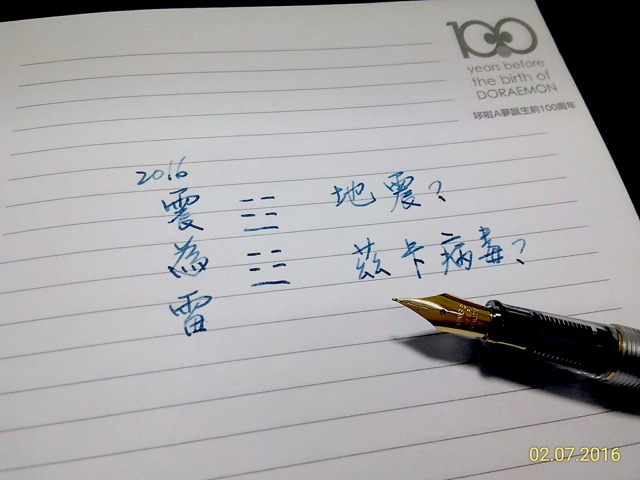 100
years before
the birth of
DORAEMON
哆啦A夢誕生前100周年
2016
震為雷
地震?
茲卡病毒?
02.07.2016